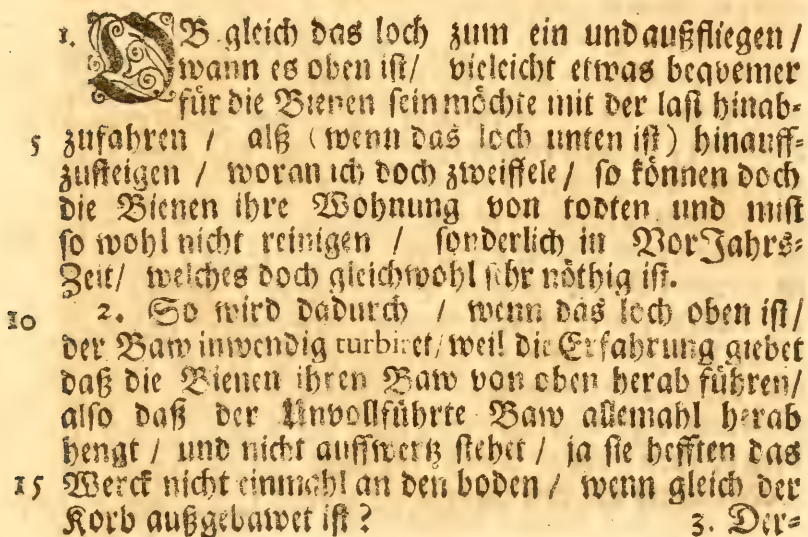 1. OB gleich das loch zum ein und außfliegen /
wann es oben ist / vieleicht etwas beqvemer
für die Bienen sein möchte mit der last hinab-
5 zufahren / alß (wenn das loch unten ist) hinauff-
zusteigen / woran ich doch zweiffele / so können doch
die Bienen ihre Wohnung von todten und mist
so wohl nicht reinigen / sonderlich in VorJahrs-
Zeit / welches doch gleichwohl sehr nöthig ist.
10 2. So wird dadurch / wenn das loch oben ist /
der Baw inwendig turbiret / weil die Erfahrung giebet
daß die Bienen ihren Baw von oben herab führen /
also daß der Unvollführte Baw allemahl herab
hengt / und nicht auffwertz stehet / ja sie hefften das
15 Werck nicht einmahl an den boden / wenn gleich der
Korb außgebawet ist ? 3. Der-